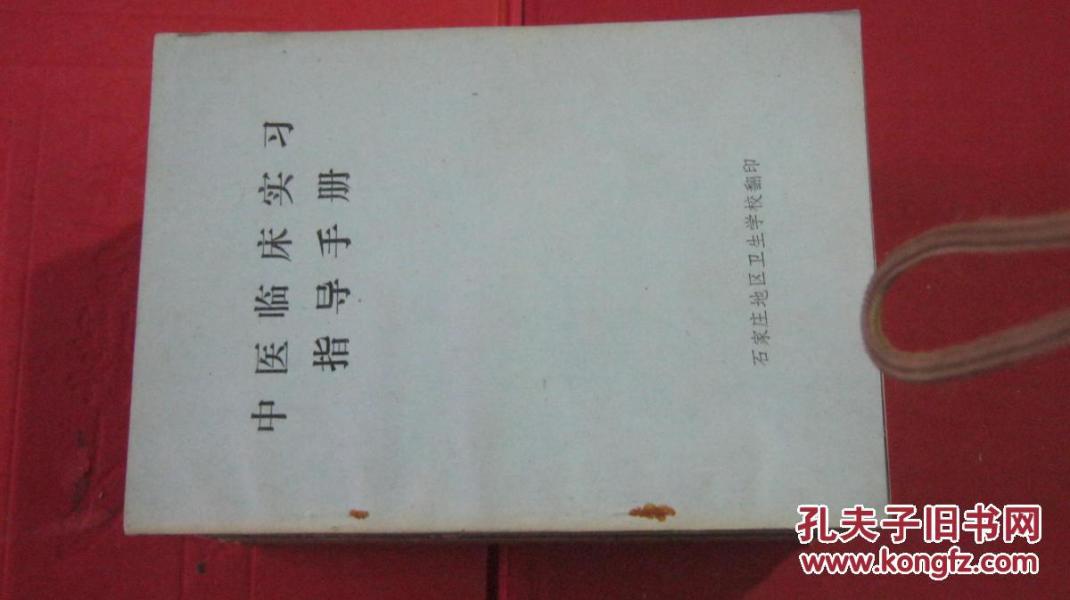 中医临床实习
指导手册
石家庄地区卫生学校翻印
孔夫子旧书网
www.kongfz.com